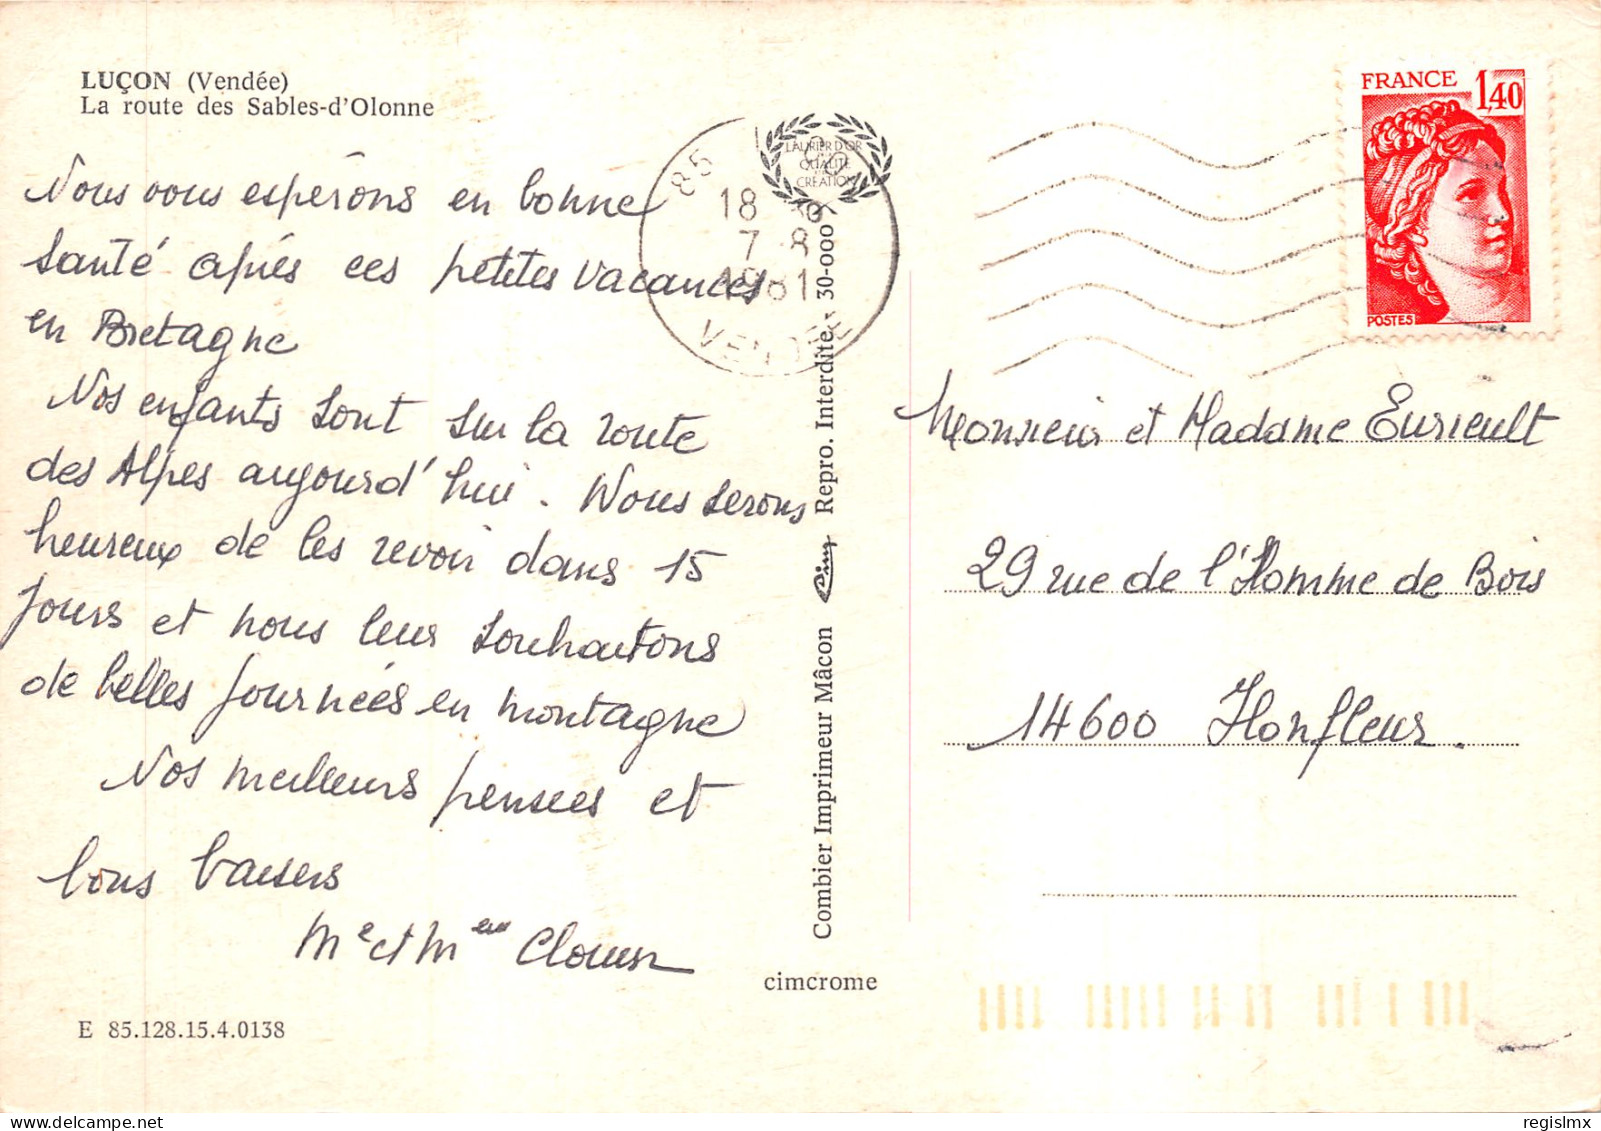 LUÇON (Vendée)
La route des Sables-d'Olonne
Nous vous espérons en bonne
santé après ces petites vacances
en Bretagne
Nos enfants sont sur la route
des Alpes aujourd'hui. Nous serons
heureux de les revoir dans 15
jours et nous leur souhaitons
de belles journées en montagne
Nos meilleurs pensées et
bons baisers
Me et Mme
E 85.128.15.4.0138
85
18
7 - 8
1981
VENDÉE
LAURIER D'OR
QUALITÉ
CRÉATION
Combier Imprimeur Mâcon Cim Repro. Interdite. - 30-000
cimcrome
FRANCE 1,40
POSTES
Monsieur et Madame Eurieult
29 rue de l'Homme de Bois
14600 Honfleur.
regislmx